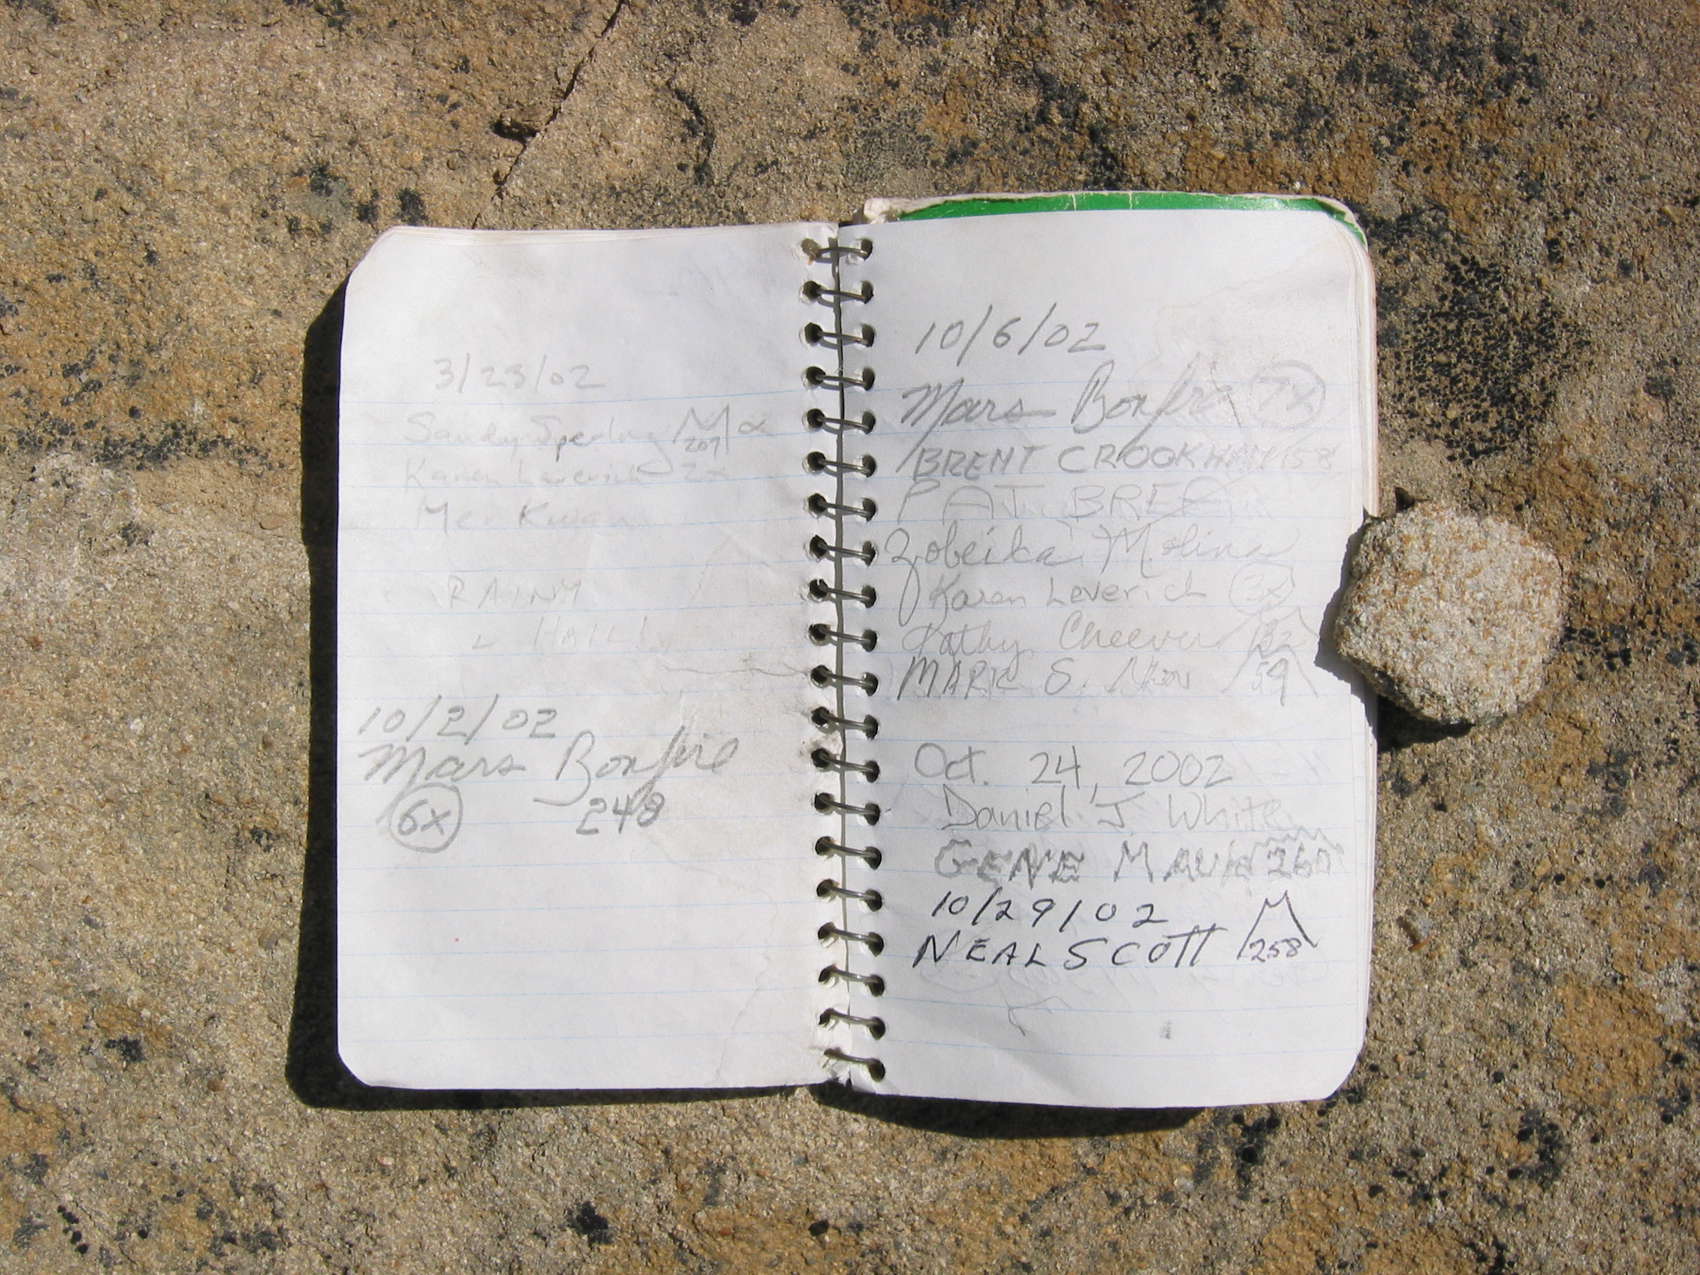 3/23/02
Sandy Sperling 207 2x
Karen Leverich 2x
Mei Kwan
RAINY
+ HAIL!
10/2/02
Mars Bonfire
6x 248
10/6/02
Mars Bonfire 7x
BRENT CROOKHAM 158
PAT BREE
Zobeida Molina
Karen Leverich 3x
Kathy Cheever 132
MARK S. 59
Oct. 24, 2002
Daniel J. White
GENE MAUK 260
10/29/02
NEAL SCOTT 258